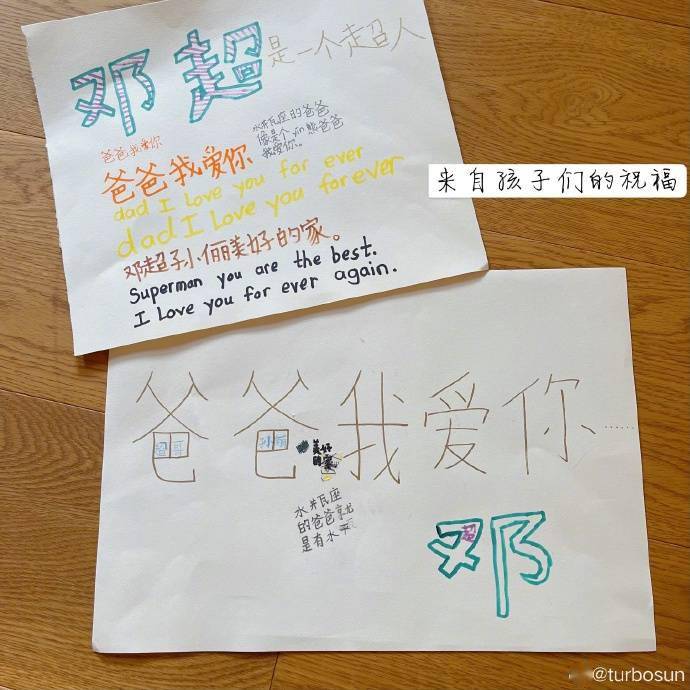 邓超是一个超人
爸爸我爱你
水井瓦座的爸爸
像是个yin熊爸爸
我爱你。
爸爸我爱你
dad I love you for ever
dad I Love you forever
邓超孙俪美好的家。
Superman you are the best.
I Love you for ever again.
来自孩子们的祝福
爸爸我爱你……
超哥
孙俪
美好
的家
水井瓦座
的爸爸就
是有水平
邓
超
@turbosun